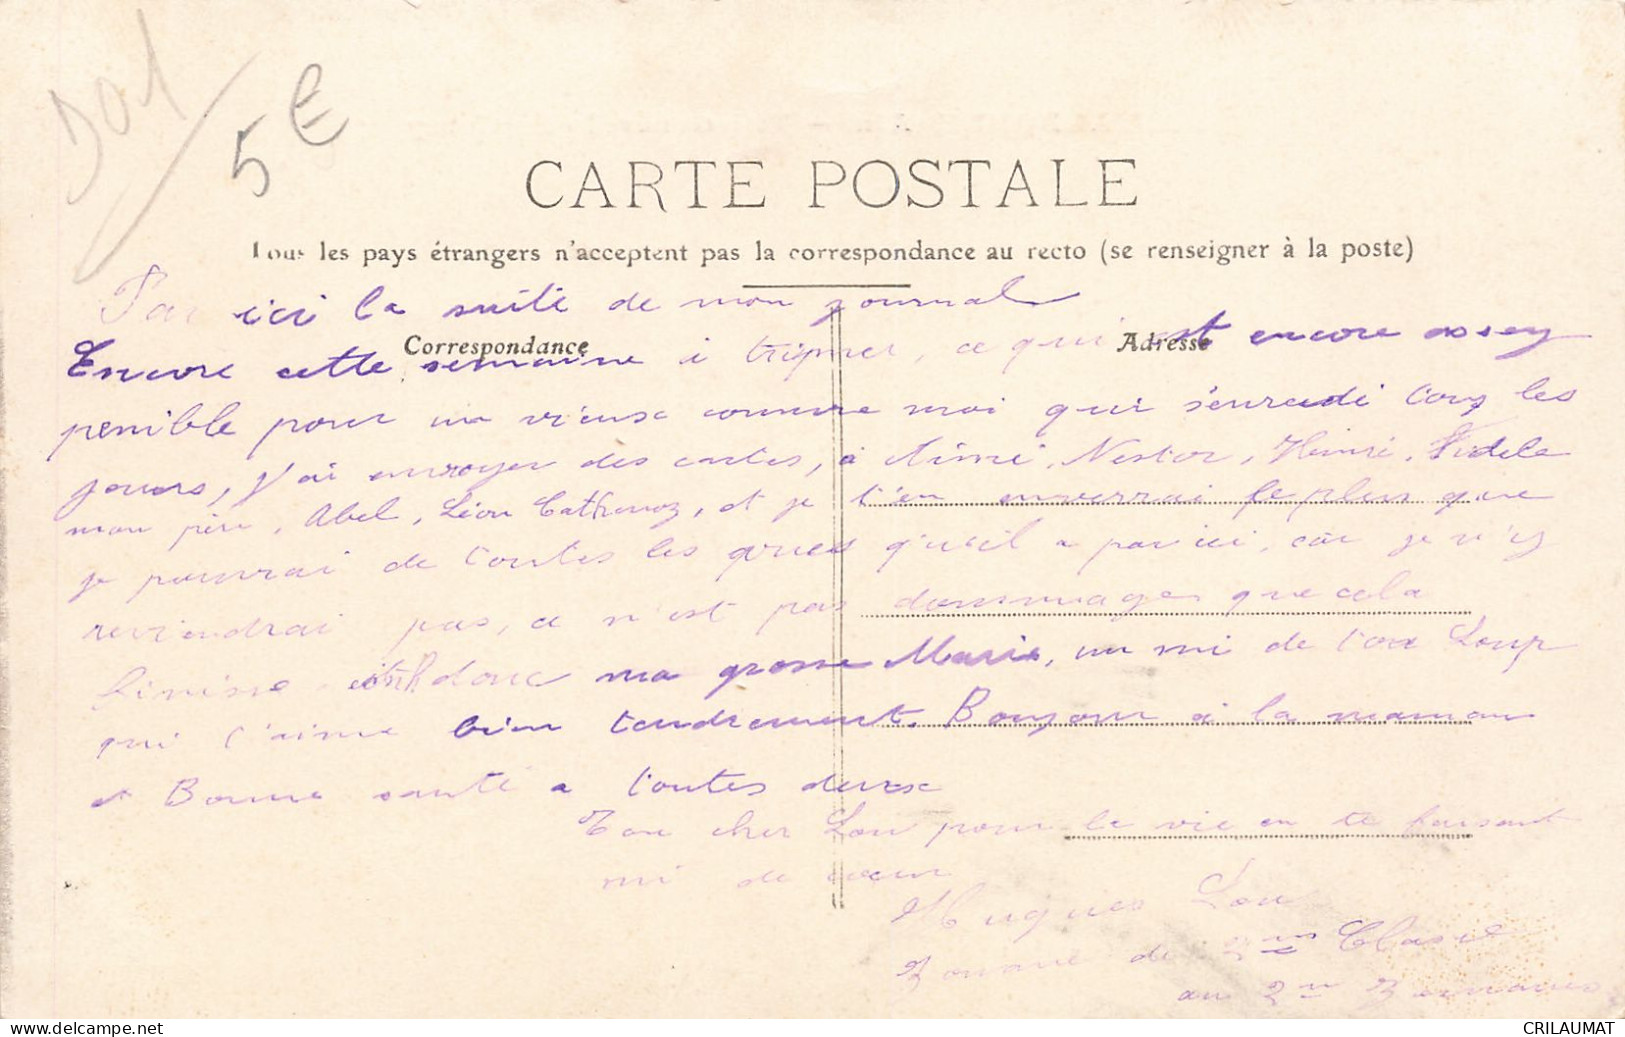 D01
5€
CARTE POSTALE
Tous les pays étrangers n'acceptent pas la correspondance au recto (se renseigner à la poste)
Par ici la suite de mon journal
Correspondance
Adresse
Encore cette semaine à trimer, ce qui est encore assey
penible pour un vieux comme moi qui s'enrendi tous les
jours, j'ai envoyer des cartes, à Aimé, Nestor, Henri, Fidele
mon père, Abel, Léon, et je t'en enverrai le plus que
je pourrai de toutes les qu'il a par ici, car je n'y
reviendrai pas, ce n'est pas dommages que cela
finisse donc ma grosse Marie, un mi de ton Loup
qui t'aime bien tendrement. Bonjour à la maman
et Bonne santé a toutes deux
Ton cher Lou pour la vie en te faisant
mi de coeur
Hugues Lou
Zouave de 2me Classe
au 2me Zouaves
CRILAUMAT